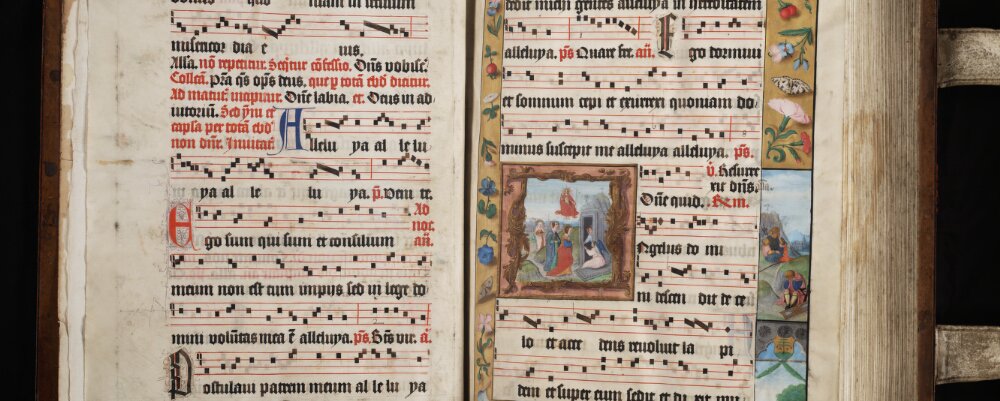 misericor dia e ius.
Alla. non repetitur. Sequitur confessio. Dns vobisc.
Collca. Pra qs ops deus, que p totā ebd dicatur.
Ad matut. incipitur. Dne labia. et. Deus in ad
iutoriū. Sed
capla per totā ebd
non dnr. Invitat. Alleluu ya al le lu
ya al le lu ya. ps. Veni te.
Ad
noc.
Ego sum qui sum et consilium an.
meum non est cum impiis sed in lege do
mini volūtas mea ē alleluya. ps. Bts vir. a.
Postulaui patrem meum al le lu ya
dedit michi gentes alleluya in hereditatem
alleluya. ps Quare fre. an. Ego dormiui
et somnum cepi et exurrexi quoniam do
minus suscepit me alleluya alleluya. ps.
Dne quid. v. Resurre
xit dns.
Angelus do mi
ni descen dit de ce
lo et acce dens reuoluit la pi
dem et super eum sedit et di xit mu